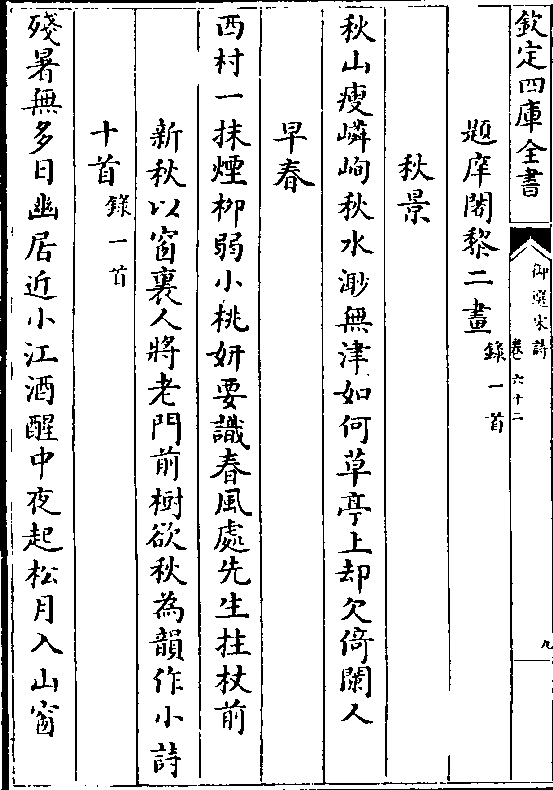 欽定四庫全書
御選宋詩
卷六十二
九
題庠闍黎二畫錄一首
秋景
秋山瘦嶙峋秋水渺無津如何草亭上却欠倚闌人
早春
西村一抹煙栁弱小桃妍要識春風處先生拄杖前
新秋以窗裏人將老門前樹欲秋為韻作小詩
十首錄一首
殘暑無多日幽居近小江酒醒中夜起松月入山窗